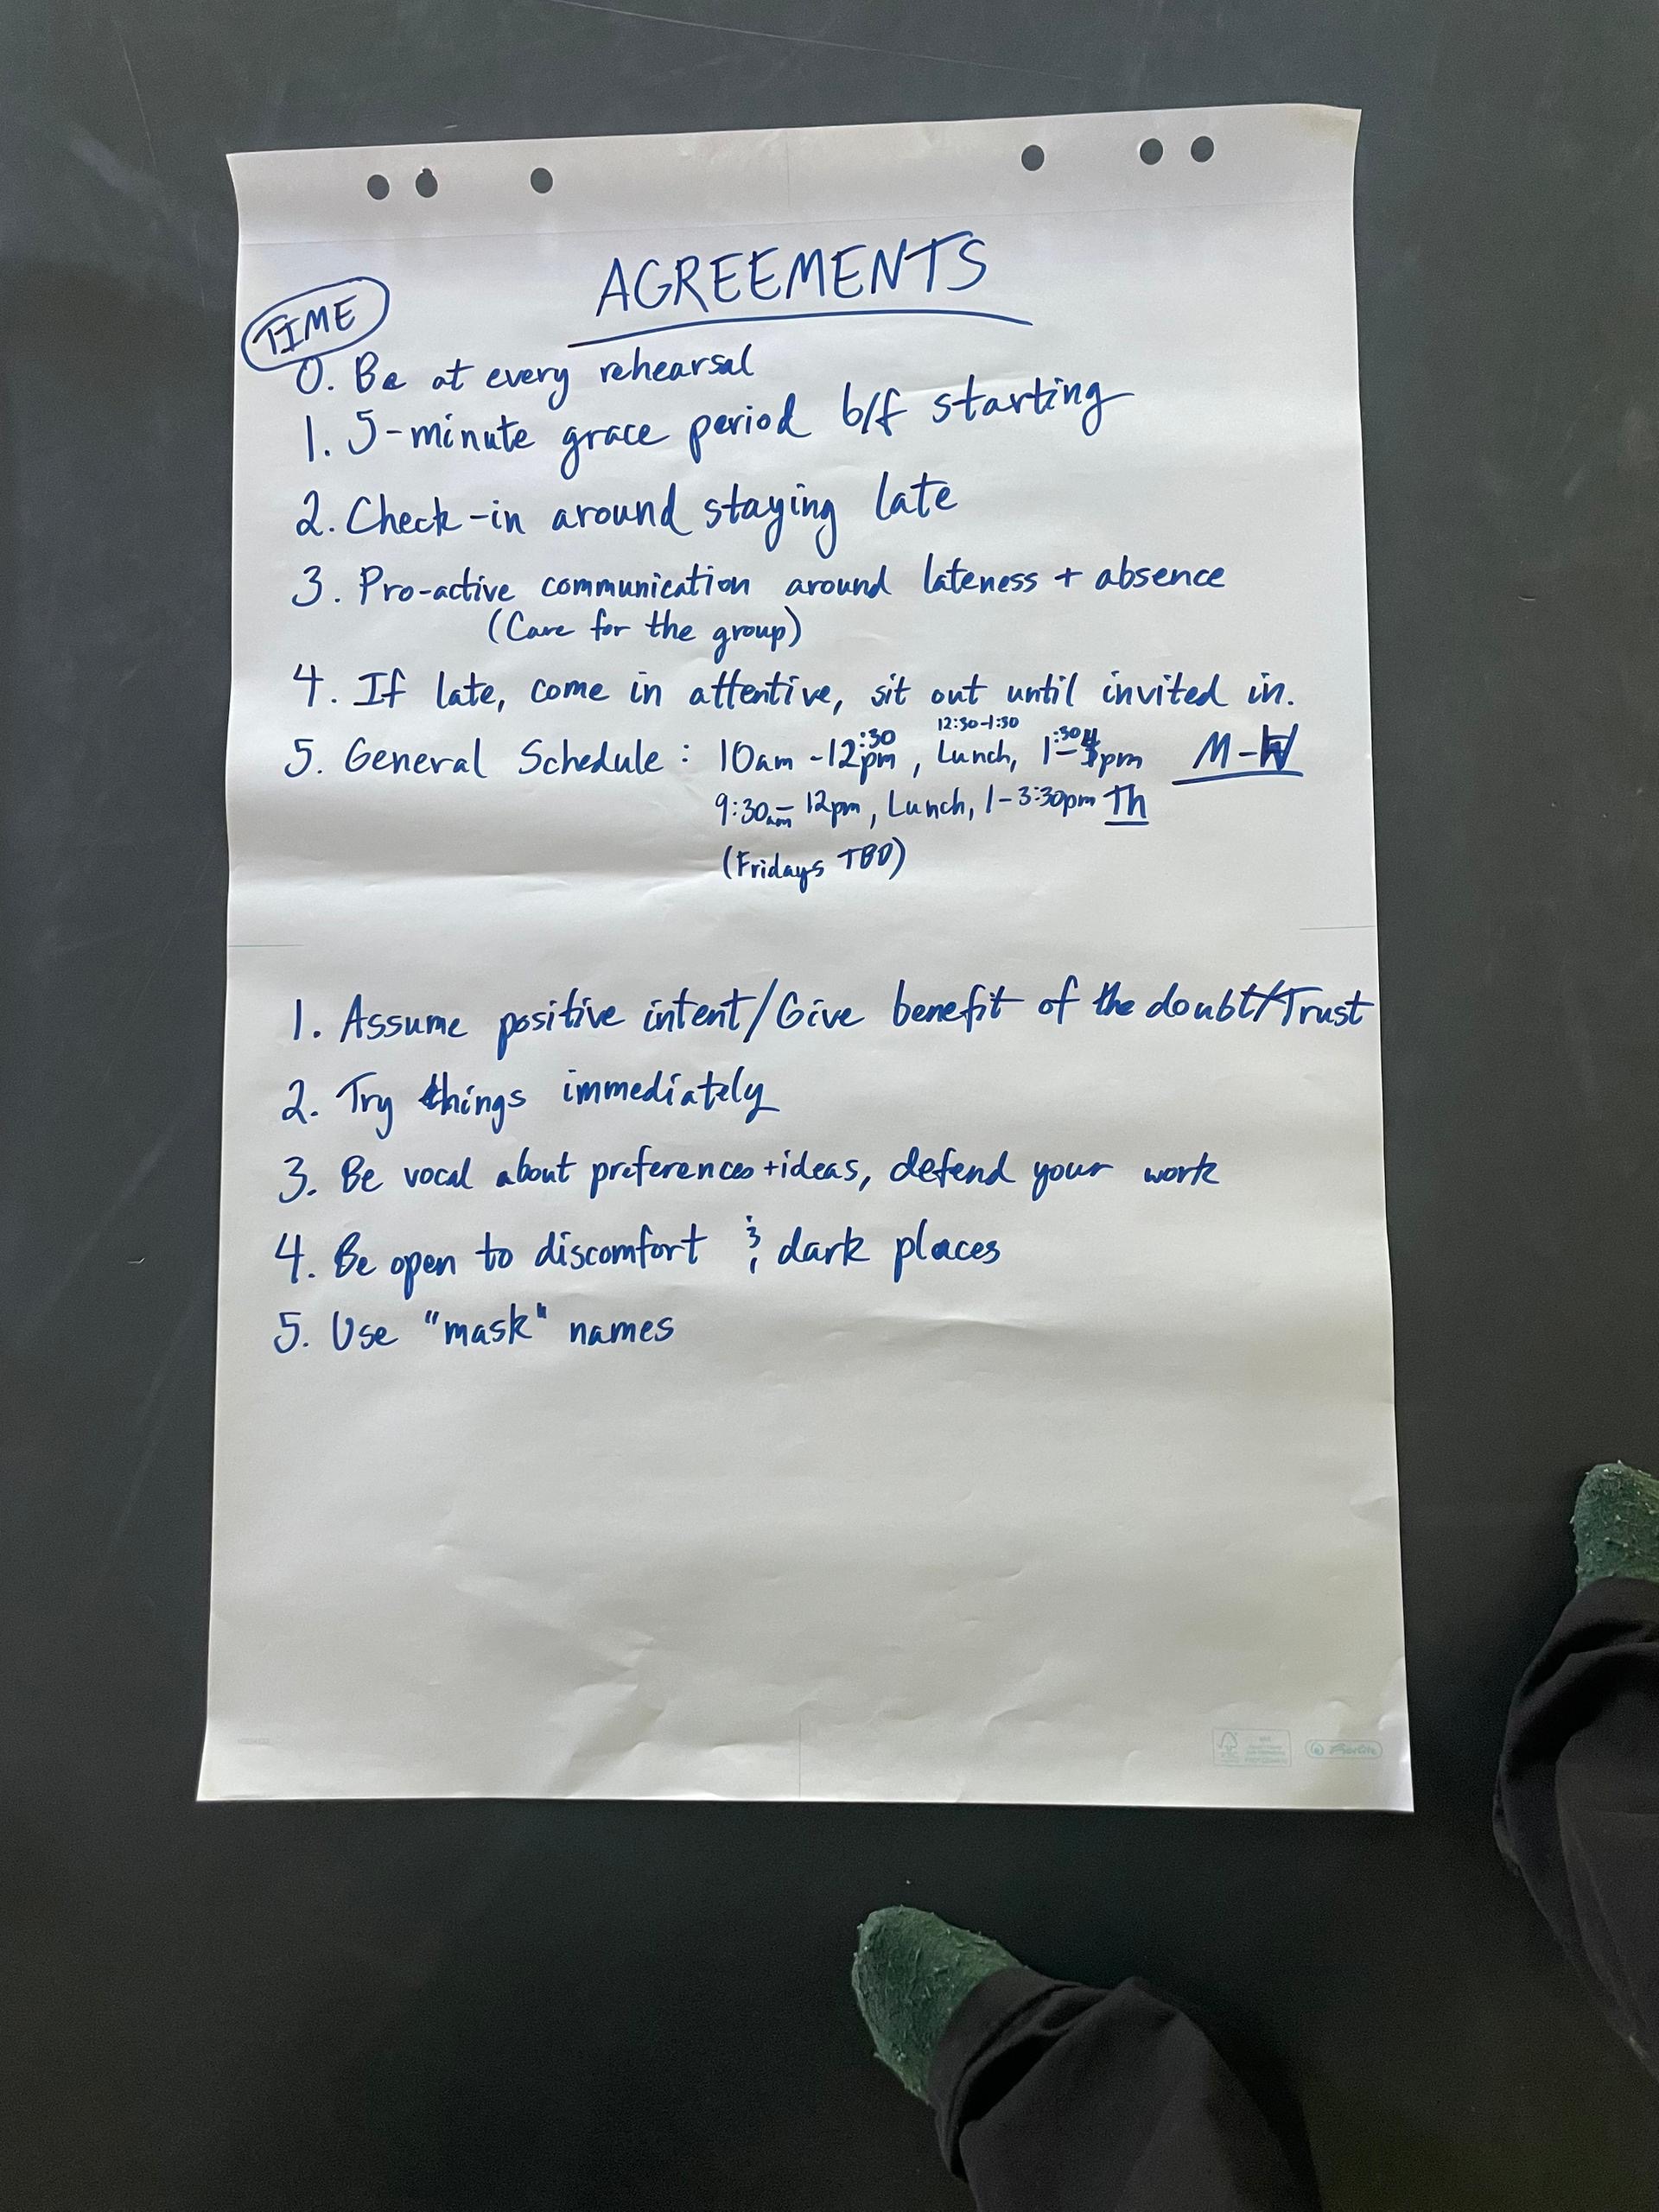 AGREEMENTS
TIME
0. Be at every rehearsal
1. 5-minute grace period b/f starting
2. Check-in around staying late
3. Pro-active communication around lateness + absence
(Care for the group)
4. If late, come in attentive, sit out until invited in.
12:30-1:30
5. General Schedule: 10am-12:30pm, Lunch, 1:30-4pm M-W
9:30am-12pm, Lunch, 1-3:30pm Th
(Fridays TBD)
1. Assume positive intent/Give benefit of the doubt/Trust
2. Try things immediately
3. Be vocal about preferences+ideas, defend your work
4. Be open to discomfort & dark places
5. Use "mask" names